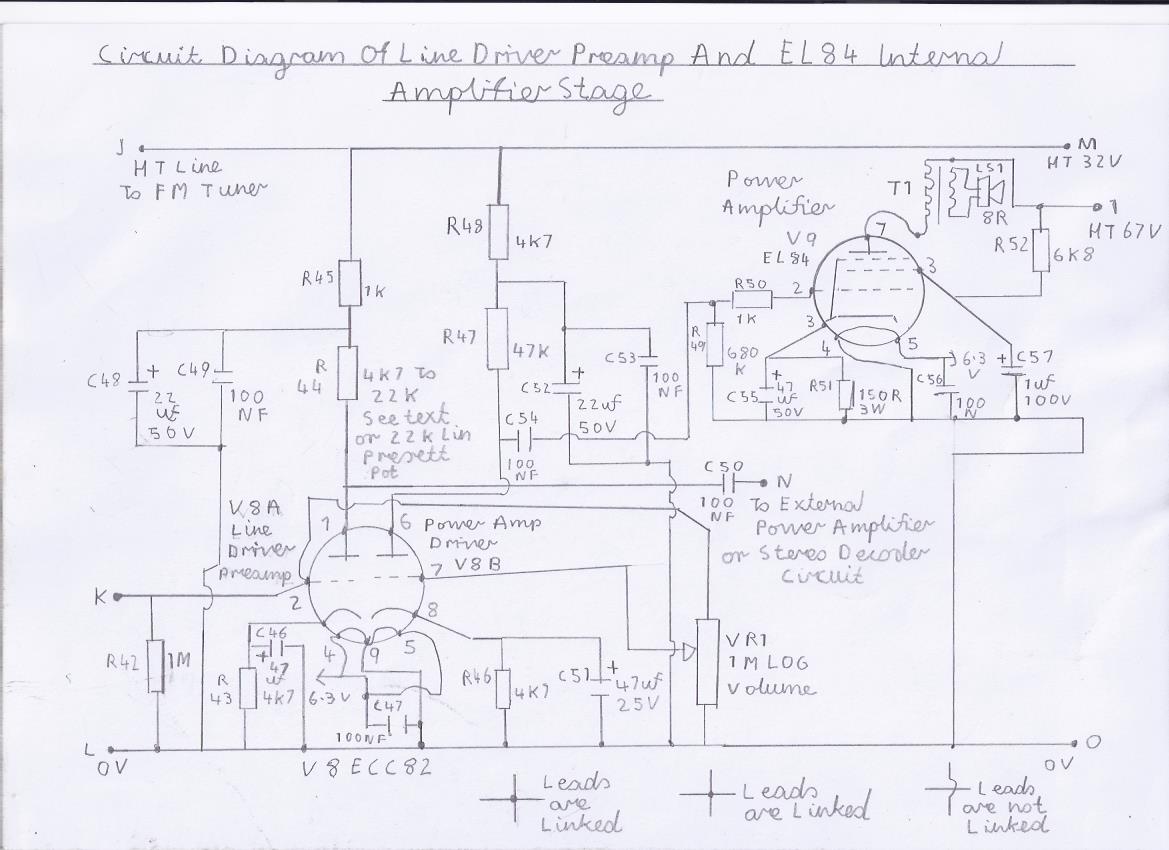 Circuit Diagram Of Line Driver Preamp And EL84 Internal
Amplifier Stage
J
HT Line
To FM Tuner
M
HT 32V
Power
Amplifier
V9
EL84
T1
LS1
8R
1
HT 67V
R52
6K8
R48
4K7
R45
1K
7
3
2
3
4
5
R50
1K
R
49
680
K
R47
47K
C53
100
NF
C48
+
22
uf
50V
C49
100
NF
R
44
4K7 To
22K
See text
or 22K Lin
Presett
Pot
C52
+
22uf
50V
C54
100
NF
C55
+
47
uF
50V
R51
150R
3W
6.3
V
C56
100
N
+
C57
1uf
100V
C50
100
NF
N
To External
Power Amplifier
or Stereo Decoder
Circuit
V8A
Line
Driver
Preamp
1
6
Power Amp
Driver
V8B
7
2
8
4
9
5
K
R42
1M
C46
+
47
uf
R
43
4K7
6.3V
C47
100NF
R46
4K7
C51
+
47uf
25V
VR1
1M LOG
Volume
L
0V
V8 ECC82
O
0V
Leads
are
Linked
Leads
are Linked
Leads
are not
Linked